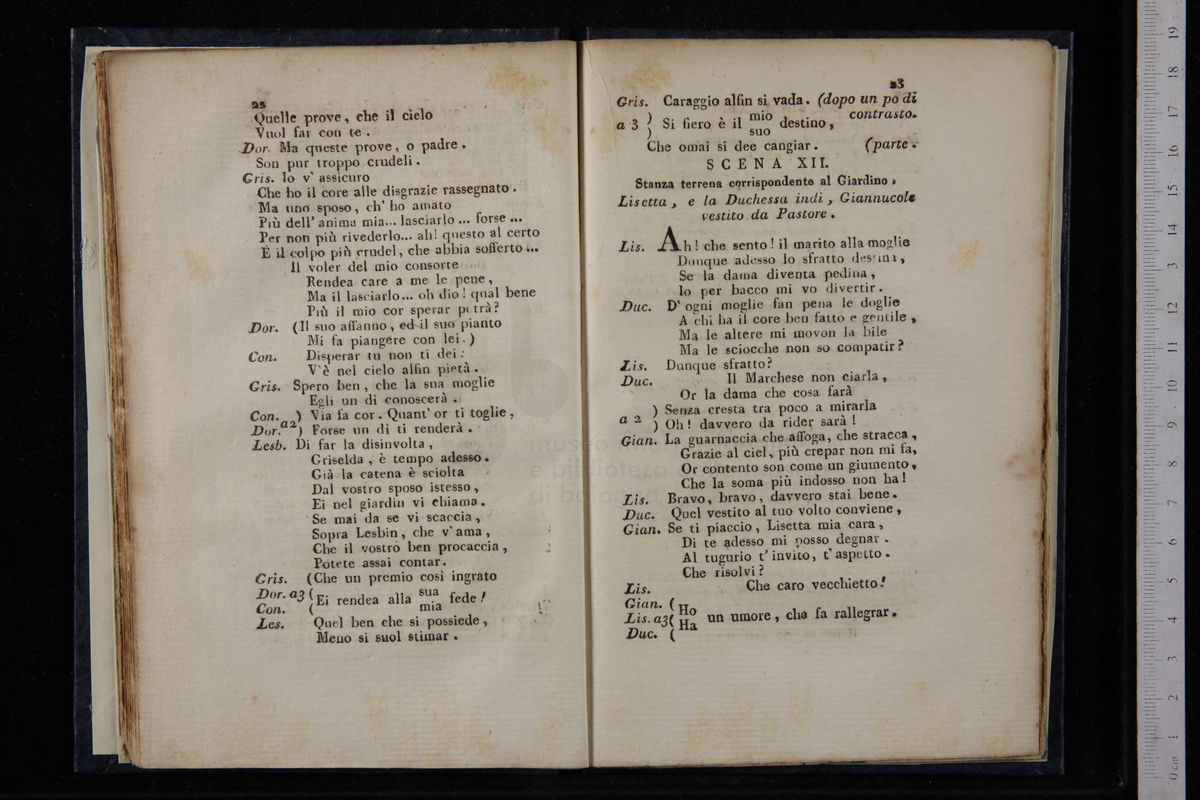 22
Quelle prove, che il cielo
Vuol far con te.
Dor. Ma queste prove, o padre.
Son pur troppo crudeli.
Gris. Io v' assicuro
Che ho il core alle disgrazie rassegnato.
Ma uno sposo, ch' ho amato
Più dell' anima mia... lasciarlo ... forse ...
Per non più rivederlo... ah! questo al certo
E il colpo più crudel, che abbia sofferto ...
Il voler del mio consorte
Rendea care a me le pene,
Ma il lasciarlo... oh dio! qual bene
Più il mio cor sperar potrà?
Dor. (Il suo affanno, ed il suo pianto
Mi fa piangere con lei.)
Con. Disperar tu non ti dei:
V'è nel cielo alfin pietà.
Gris. Spero ben, che la sua moglie
Egli un dì conoscerà.
Con. ) Via fa cor. Quant' or ti toglie,
Dor. a2 ) Forse un dì ti renderà.
Lesb. Di far la disinvolta,
Griselda, è tempo adesso.
Già la catena è sciolta
Dal vostro sposo istesso,
Ei nel giardin vi chiama.
Se mai da se vi scaccia,
Sopra Lesbin, che v'ama,
Che il vostro ben procaccia,
Potete assai contar.
Gris. (Che un premio così ingrato
Dor. a3 ( Ei rendea alla sua fede!
Con. ( mia
Les. Quel ben che si possiede,
Meno si suol stimar.
23
Gris. Caraggio alfin si vada. (dopo un po di
contrasto.
a 3 ) Si fiero è il mio destino,
) suo
Che omai si dee cangiar. (parte.
SCENA XII.
Stanza terrena corrispondente al Giardino,
Lisetta, e la Duchessa indi, Giannucole
vestito da Pastore.
Lis. Ah! che sento! il marito alla moglie
Dunque adesso lo sfratto destina,
Se la dama diventa pedina,
Io per bacco mi vo divertir.
Duc. D' ogni moglie fan pena le doglie
A chi ha il core ben fatto e gentile,
Ma le altere mi movon la bile
Ma le sciocche non so compatir?
Lis. Dunque sfratto?
Duc. Il Marchese non ciarla,
Or la dama che cosa farà
a 2 ) Senza cresta tra poco a mirarla
) Oh! davvero da rider sarà!
Gian. La guarnaccia che affoga, che stracca,
Grazie al ciel, più crepar non mi fa,
Or contento son come un giumento,
Che la soma più indosso non ha!
Lis. Bravo, bravo, davvero stai bene.
Duc. Quel vestito al tuo volto conviene,
Gian. Se ti piaccio, Lisetta mia cara,
Di te adesso mi posso degnar.
Al tugurio t' invito, t' aspetto.
Che risolvi?
Lis. Che caro vecchietto!
Gian. ( Ho
Lis. a3( Ha un umore, che fa rallegrar.
Duc. (